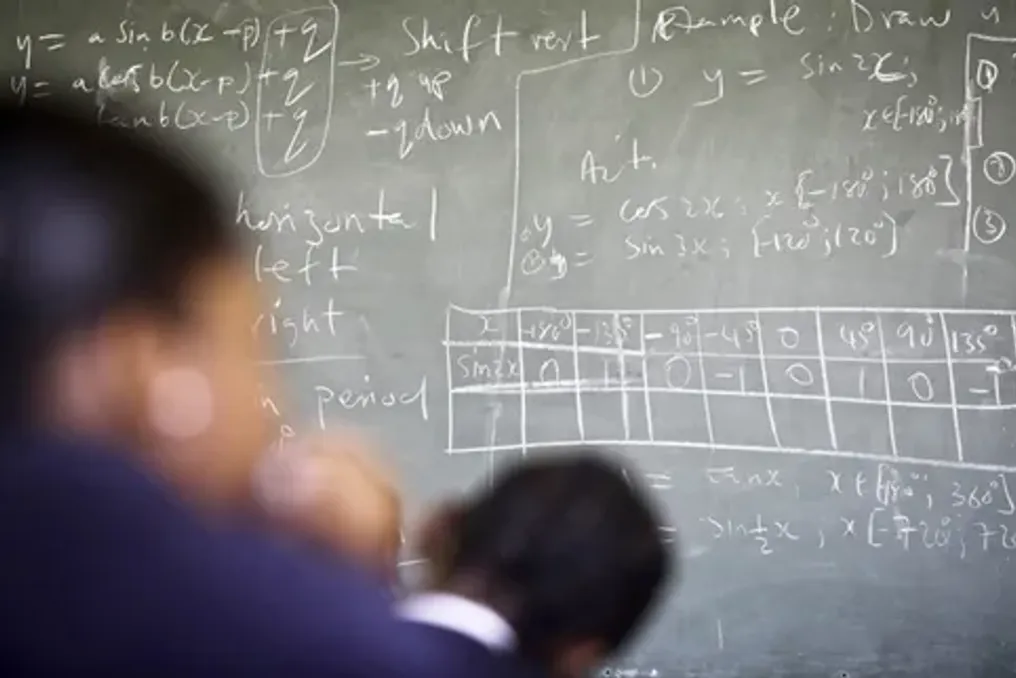 y = a sin b(x-p) + q → Shift vert
y = a cos b(x-p) + q +q up
tan b(x-p) + q -q down
horizontal
left
right
period
Example: Draw
① y = sin 2x;
x∈[-180°;
y = cos 2x; x [-180°; 180°]
② y = sin 3x; [-120°; 120°]
③
x -180° -135° -90° -45° 0 45° 90° 135°
sin2x 0 1 0 -1 0 1 0 -1
= tan x, x∈[ 360°]
= sin ½x, x[-720°; 720